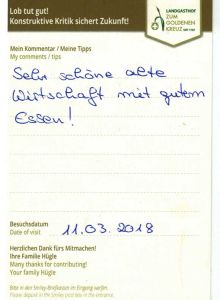 Lob tut gut!
Konstruktive Kritik sichert Zukunft!
LANDGASTHOF
ZUM
GOLDENEN
KREUZ
Mein Kommentar / Meine Tipps
My comments / tips
Sehr schöne alte
Wirtschaft mit gutem
Essen!
Besuchsdatum
Date of visit
11.03.2018
Herzlichen Dank fürs Mitmachen!
Ihre Familie Hügle
Many thanks for contributing!
Your family Hügle
Bitte in den Smiley-Briefkasten im Eingang werfen.
Please deposit in the Smiley post box in the entrance.